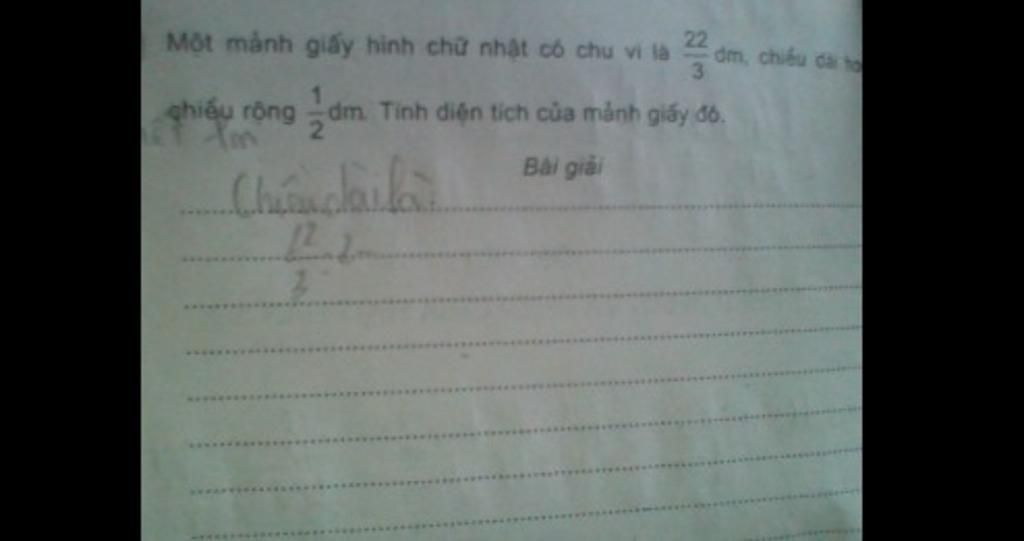 Một mảnh giấy hình chữ nhật có chu vi là 22/3 dm, chiều dài
chiều rộng 1/2 dm. Tính diện tích của mảnh giấy đó.
Bài giải
Chiều dài là: